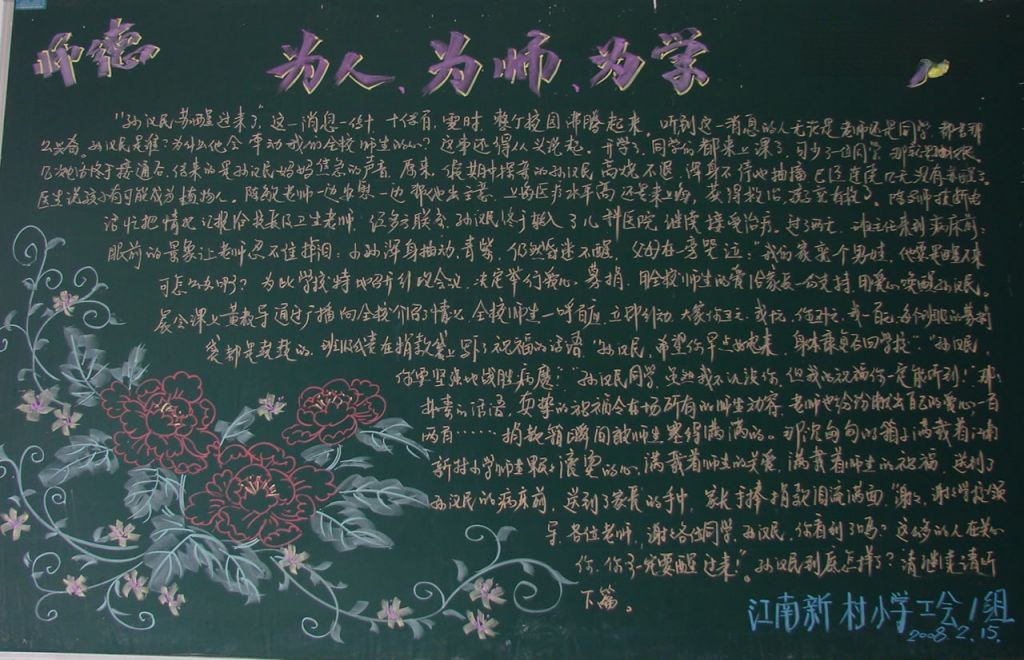 师德
为人、为师、为学
"孙汉民苏醒过来了"这一消息一传十,十传百,霎时,整个校园沸腾起来。听到这一消息的人无论是老师还是同学,都
孙汉民是谁?为什么他会牵动我们全校师生的心?这事还得从头说起。开学了,同学们都来上课了,可少了一位同学,
电话终于接通了,传来的是孙汉民妈妈焦急的声音,原来,假期中接寄的孙汉民高烧不退,浑身不停地抽搐,已经连续几天没有苏醒了。
医生说孩子有可能成为植物人。陈敏老师一边安慰,一边帮他出主意,上海医疗水平高,还是来上海,
话忙把情况汇报给校长及卫生老师,经多联系,孙汉民终于转入了儿科医院,继续接受治疗。过了两天,班主任来到病床前:
眼前的景象让老师忍不住掉泪:小孙浑身抽动,青紫,仍然昏迷不醒,父母在旁哭泣:"我们家亲个男娃,他要是醒不来
可怎么办啊?"为此学校特地召开行政会议,决定举行爱心募捐,用全校师生的爱给家长一份支持,用爱心唤醒孙汉民。
晨会课上黄教导通过广播向全校介绍了情况,全校师生一呼百应,立即行动,大家你五元,我十元,你五十元,我一百元,
袋都是鼓鼓的,班级代表在捐款袋上写了祝福的话语"孙汉民,希望你早点好起来,身体康复后回学校"。"孙汉民,
你要坚强地战胜病魔!""孙汉民同学,虽然我不认识你,但我的祝福你一定能听到!"那
朴素的话语,真挚的祝福令在场所有的师生动容,老师也纷纷献出自己的爱心,一百
两百……捐款箱瞬间被师生塞得满满的。那沉甸甸的箱子满载着江南
新村小学师生颗颗滚烫的心,满载着师生的关爱,满载着师生的祝福,送到了
孙汉民的病床前,送到了家长的手中,家长手捧捐款泪流满面,"谢谢,谢谢学校领
导,各位老师,谢谢各位同学,孙汉民,你看到了吗?这么多的人在关心
你,你一定要醒过来!"孙汉民到底怎样了?请继续请听
下篇。
江南新村小学工会1组
2008.2.15.